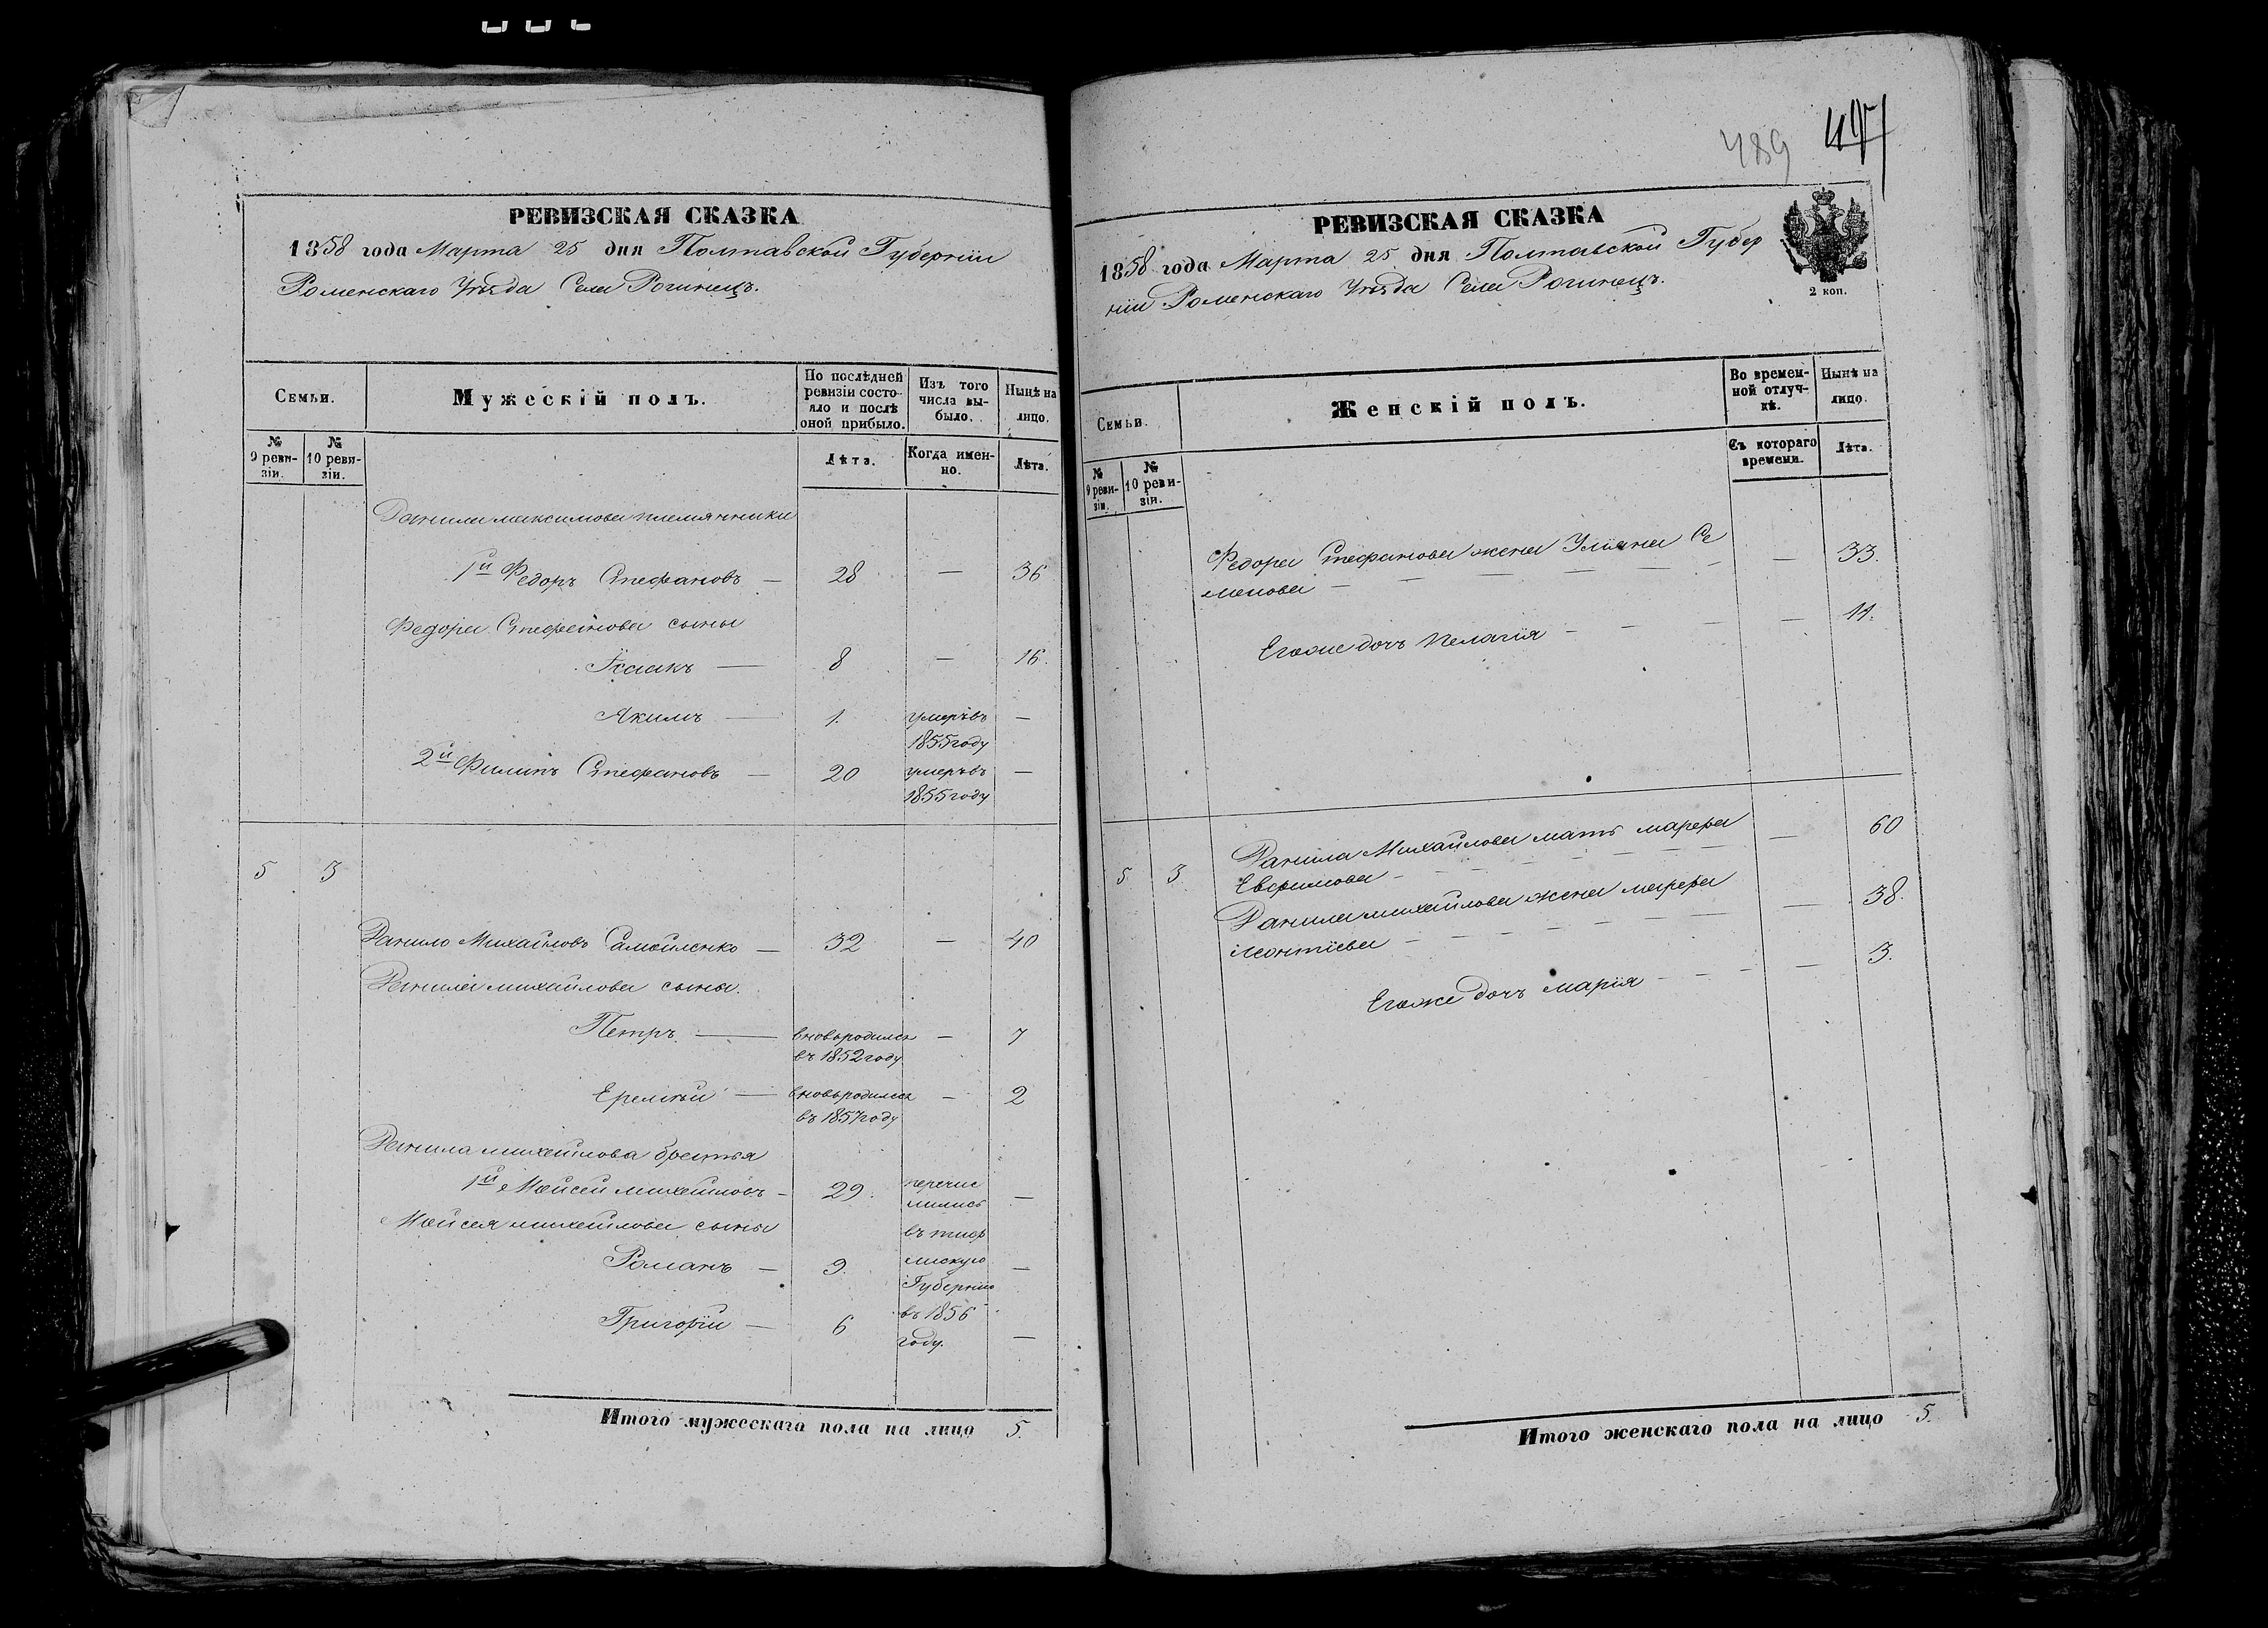 РЕВИЗСКАЯ СКАЗКА
1858 года Марта 25 дня Полтавской Губерніи
Роменскаго Уѣзда Села Рогинецъ.
Семьи.
Мужескій полъ.
По послѣдней ревизіи состояло и послѣ оной прибыло.
Изъ того числа выбыло.
Нынѣ на лицо.
№ 9 ревизіи.
№ 10 ревизіи.
Лѣта.
Когда именно.
Лѣта.
Данила максимова племянники
1й Федоръ Стефановъ — 28 — 36
Федора Стефанова сыны
Исаакъ — 8 — 16.
Акимъ — 1. умеръ въ 1855 году —
2й Филипъ Стефановъ — 20 умеръ въ 1855 году —
5 3
Данило Михайловъ Самойленко — 32 — 40
Данила михайлова сыны.
Петръ. — вновь родился въ 1852 году — 7
Еремѣй — вновь родился въ 1857 году — 2
Данила михайлова братья
1й Мойсей михайловъ — 29. перечислились —
Мойсея михайлова сыны въ
Романъ — 9. Губернію —
Григорій — 6 въ 1856 году. —
Итого мужескаго пола на лицо 5.
489
РЕВИЗСКАЯ СКАЗКА
1858 года Марта 25 дня Полтавской Губер
ніи Роменскаго Уѣзда Села Рогинецъ.
2 коп.
Семьи.
Женскій полъ.
Во временной отлучкѣ.
Нынѣ на лицо.
№ 9 ревизіи.
№ 10 ревизіи.
Съ котораго времени.
Лѣта.
Федора Стефанова жена Уліяна Се
менова — — 33.
Егоже дочь Пелагія — — 11.
5. 3.
Данила Михайлова мать марфа
Евфимова — — 60
Данила михайлова жена марфа
Леонтіева — — 38.
Егоже дочь марія — — 3.
Итого женскаго пола на лицо 5.